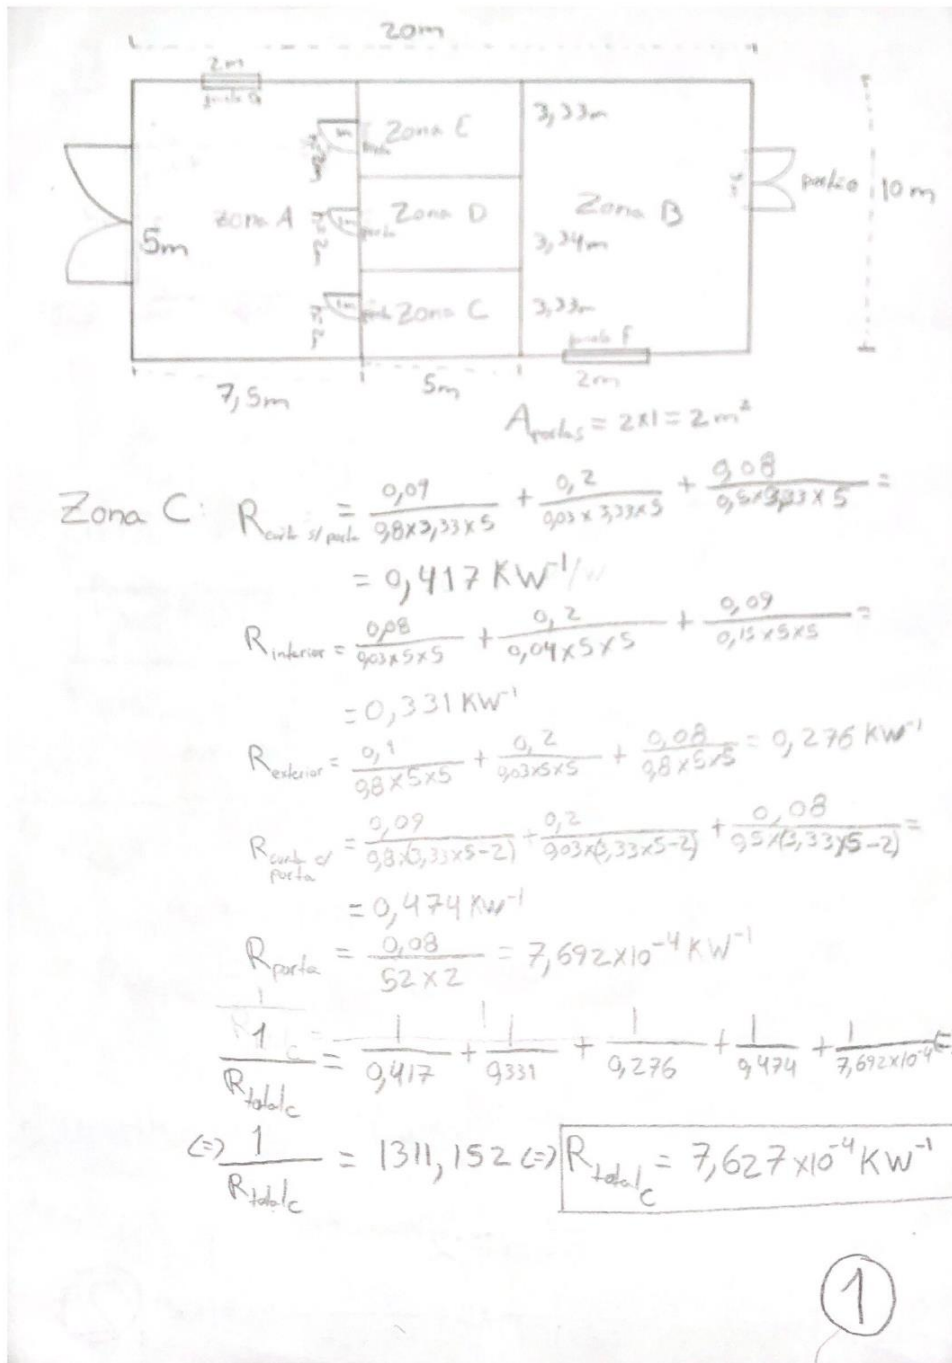 20m
2m
Zona E
3,33m
1m
Zona A
5m
Zona D
1m
porta
Zona B
3,34m
portão
10m
1m
Zona C
3,33m
7,5m
5m
2m
A portas = 2x1 = 2 m²
Zona C: R cont s/ porta = 0,09/(0,8x3,33x5) + 0,2/(0,03x3,33x5) + 0,08/(0,5x3,33x5) =
= 0,417 KW⁻¹
R interior = 0,08/(0,03x5x5) + 0,2/(0,04x5x5) + 0,09/(0,15x5x5) =
= 0,331 KW⁻¹
R exterior = 0,1/(0,8x5x5) + 0,2/(0,03x5x5) + 0,08/(0,8x5x5) = 0,276 KW⁻¹
R cont c/ porta = 0,09/(0,8x(3,33x5-2)) + 0,2/(0,03x(3,33x5-2)) + 0,08/(0,5x(3,33x5-2)) =
= 0,474 KW⁻¹
R porta = 0,08/(52x2) = 7,692x10⁻⁴ KW⁻¹
1/R total c = 1/0,417 + 1/0,331 + 1/0,276 + 1/0,474 + 1/7,692x10⁻⁴ <=
<=> 1/R total c = 1311,152 <=> R total c = 7,627x10⁻⁴ KW⁻¹
1